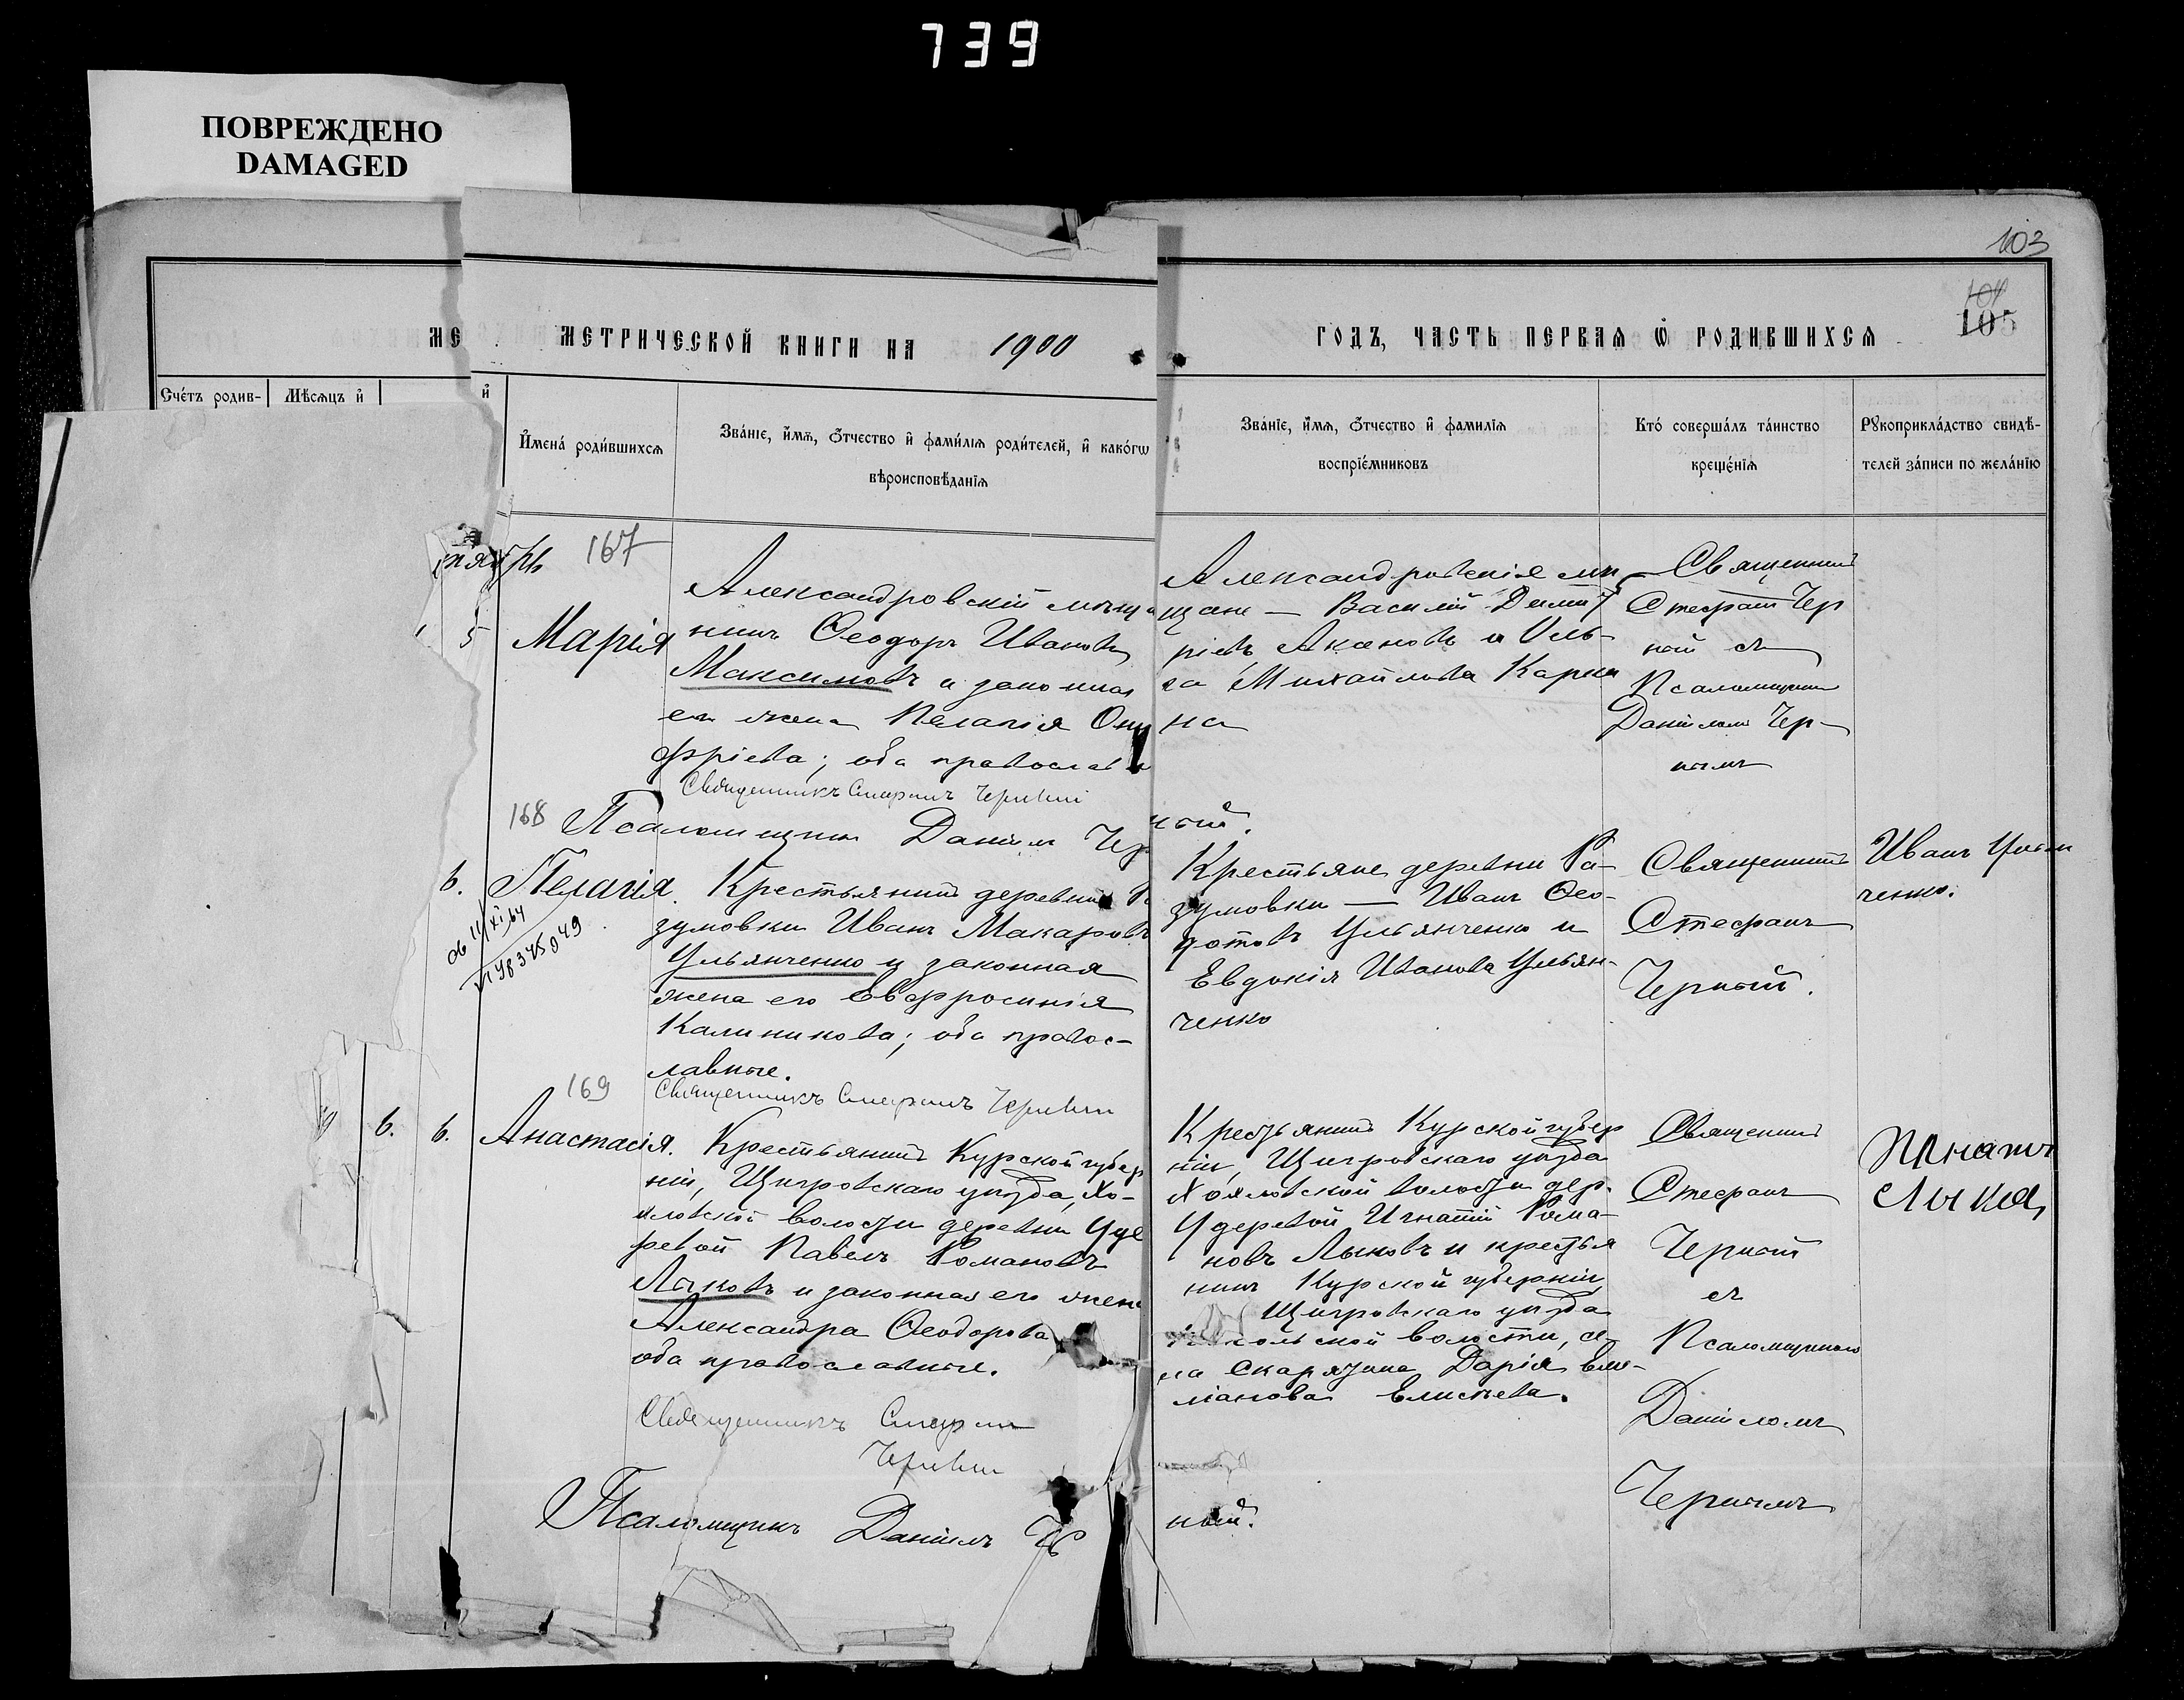 739
ПОВРЕЖДЕНО
DAMAGED
103
105
МЕ
МЕТРИЧЕСКОЙ КНИГИ НА 1900
ГОДЪ, ЧАСТЬ ПЕРВАЯ Ѡ РОДИВШИХСЯ
Счетъ родив-
Мѣсяцъ и
и
Имена родившихся
Званіе, имя, отчество и фамилія родителей, и какогѡ
вѣроисповѣданія
Званіе, имя, отчество и фамилія
воспріемниковъ
Кто совершалъ таинство
крещенія
Рукоприкладство свидѣ-
телей записи по желанію
167
5
Марія
Александровскій мѣщ
нинъ Ѳеодоръ Ивановъ
Максимовъ и законная
его жена Пелагія Ону
фріева; оба православн
Священникъ Стефанъ Черный
Александровскіе мѣ
щане — Василій Димит
ріевъ Аксеновъ и Оль-
га Михайлова Карпи
на
Священникъ
Стефанъ Чер
ный съ
Псаломщикомъ
Даніиломъ Чер-
нымъ
168
Псаломщикъ Даніилъ Чер
ный.
6.
Пелагія.
Крестьянинъ деревни Ра
зумовки Иванъ Макаровъ
Ульянченко и законная
жена его Евфросинія
Калиникова; оба правос-
лавные.
Священникъ Стефанъ Черный
Крестьяне деревни Ра-
зумовки — Иванъ Ѳео-
дотовъ Ульянченко и
Евдокія Иванова Ульян-
ченко
Священникъ
Стефанъ
Черный.
Иванъ Ульян
ченко.
169
6. 6.
Анастасія.
Крестьянинъ Курской губер
ніи, Щигровскаго уѣзда, Хо-
хловской волости деревни Уде
ревой Павелъ Романовъ
Лыковъ и законная его жена
Александра Ѳеодорова
оба православные.
Священникъ Стефанъ
Черный
Крестьянинъ Курской губер
ніи, Щигровскаго уѣзда
Хохловской волости дер.
Удеревой Игнатій Рома-
новъ Лыковъ и крестья
нинъ Курской губерніи
Щигровскаго уѣзда
волости, се-
ла Скарятина Дарія Еме-
ліанова Елисѣева.
Священникъ
Стефанъ
Черный
съ
Псаломщикомъ
Даніиломъ
Чернымъ
Игнатъ
Лыков
Псаломщикъ Даніилъ Чер
ный.